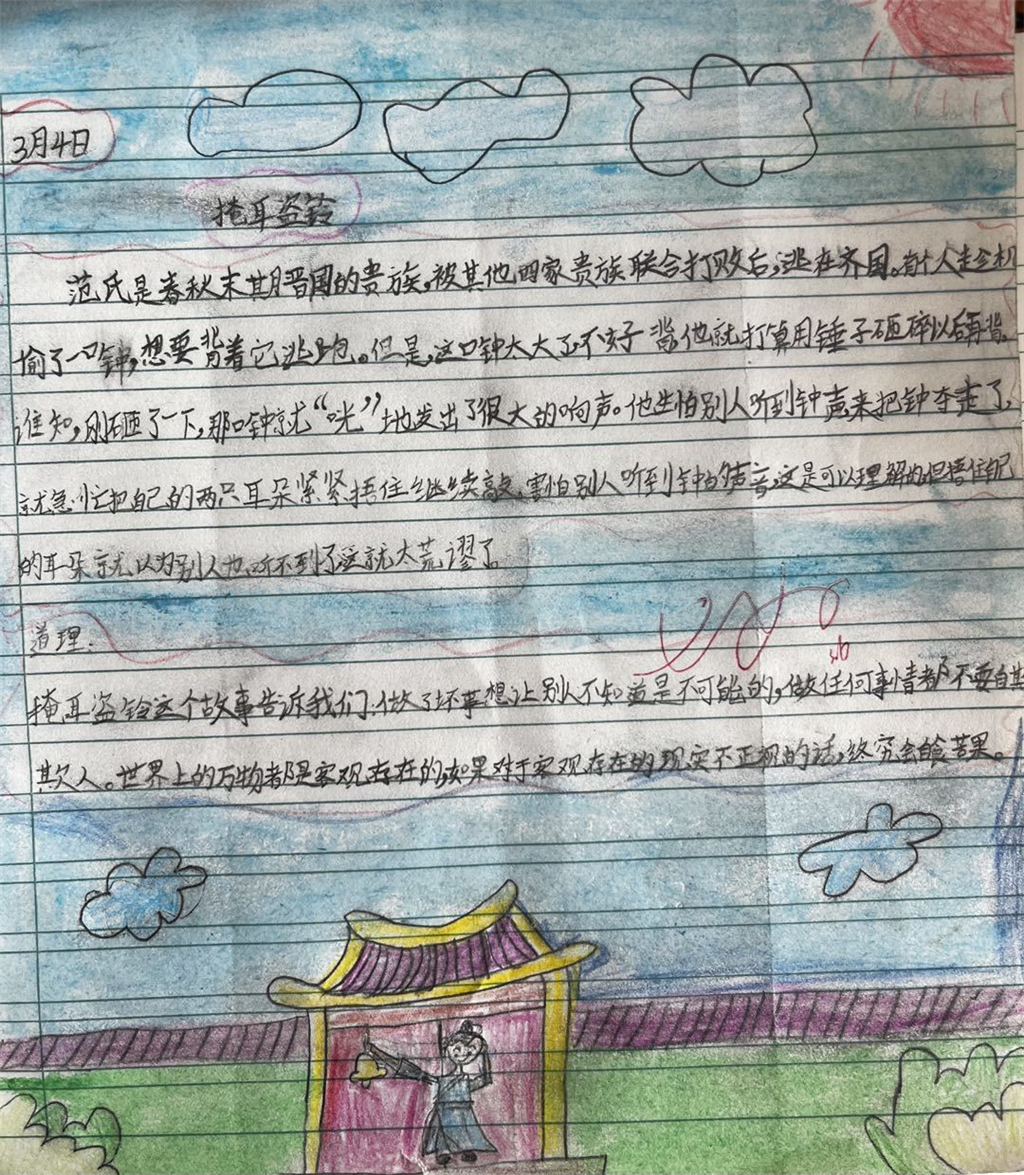 3月4日
掩耳盗铃
范氏是春秋末期晋国的贵族,被其他四家贵族联合打败后,逃在齐国。有个人趁机
偷了一口钟,想要背着它逃跑。但是,这口钟太大了不好背,他就打算用锤子砸碎以后再背。
谁知,刚砸了一下,那口钟就“咣”地发出了很大的响声。他生怕别人听到钟声,来把钟夺走了,
就急忙把自己的两只耳朵紧紧捂住继续敲。害怕别人听到钟的声音,这是可以理解的,但捂住自己
的耳朵就以为别人也听不到了,这就太荒谬了。
道理:
掩耳盗铃这个故事告诉我们:做了坏事想让别人不知道是不可能的,做任何事情都不要自其
欺人。世界上的万物都是客观存在的,如果对于客观存在的现实不正视的话,终究会食苦果。